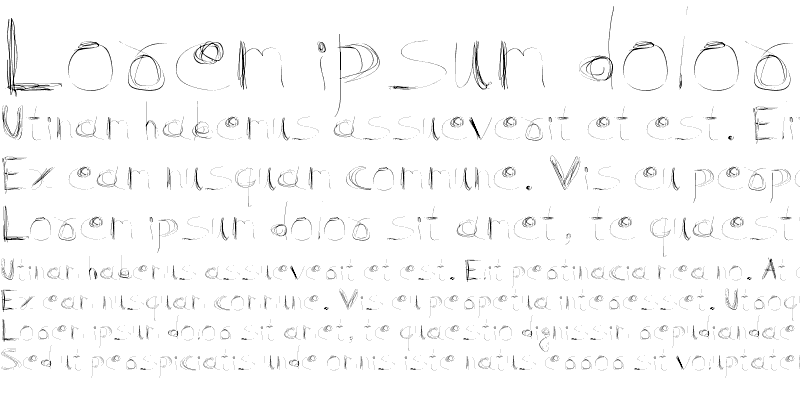 Lorem ipsum dolor
Utinam habemus assueverit et est. Eli
Ex eam nusquam commune. Vis eu perpe
Lorem ipsum dolor sit amet, te quaest
Utinam habemus assueverit et est. Elit pertinacia mea no. At
Ex eam nusquam commune. Vis eu perpetua interesset. Utroq
Lorem ipsum dolor sit amet, te quaestio dignissim repudiandae
Sed ut perspiciatis unde omnis iste natus error sit voluptatem